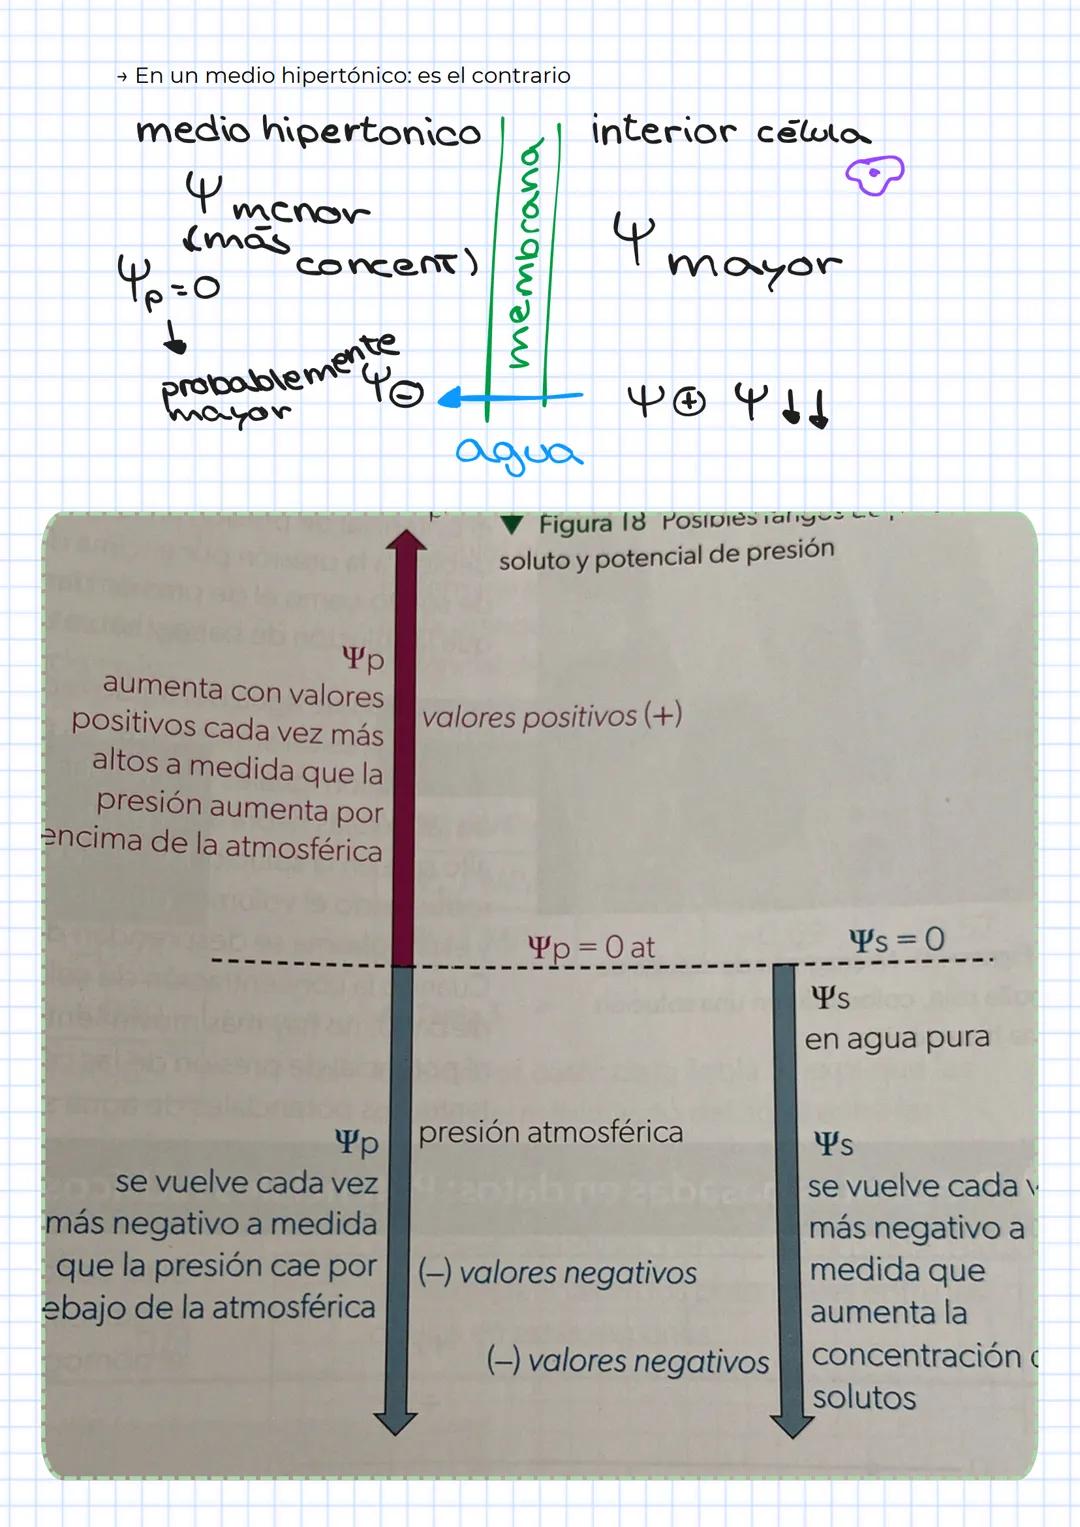 → En un medio hipertónico: es el contrario
medio hipertonico
interior célula
membrana
Ψ menor
(más concent)
Ψp=0
↓
probablemente
mayor
Ψ⊖
Ψ mayor
Ψ⊕ Ψ↓↓
agua
▼ Figura 18 Posibles rangos
soluto y potencial de presión
Ψp
aumenta con valores
positivos cada vez más
altos a medida que la
presión aumenta por
encima de la atmosférica
valores positivos (+)
Ψp = 0 at
Ψs = 0
Ψs
en agua pura
presión atmosférica
Ψp
se vuelve cada vez
más negativo a medida
que la presión cae por
ebajo de la atmosférica
(–) valores negativos
(–) valores negativos
Ψs
se vuelve cada v
más negativo a
medida que
aumenta la
concentración
solutos